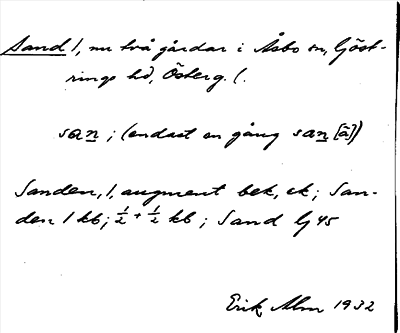 Sand 1, nu två gårdar i Åsbo sn, Göst-
rings hd, Österg. l.
san ; (endast en gång san [ā])
Sanden, 1, augment bek, ek; San-
den 1 kb; ½ + ½ kb ; Sand lj 45
Erik Alm 1932